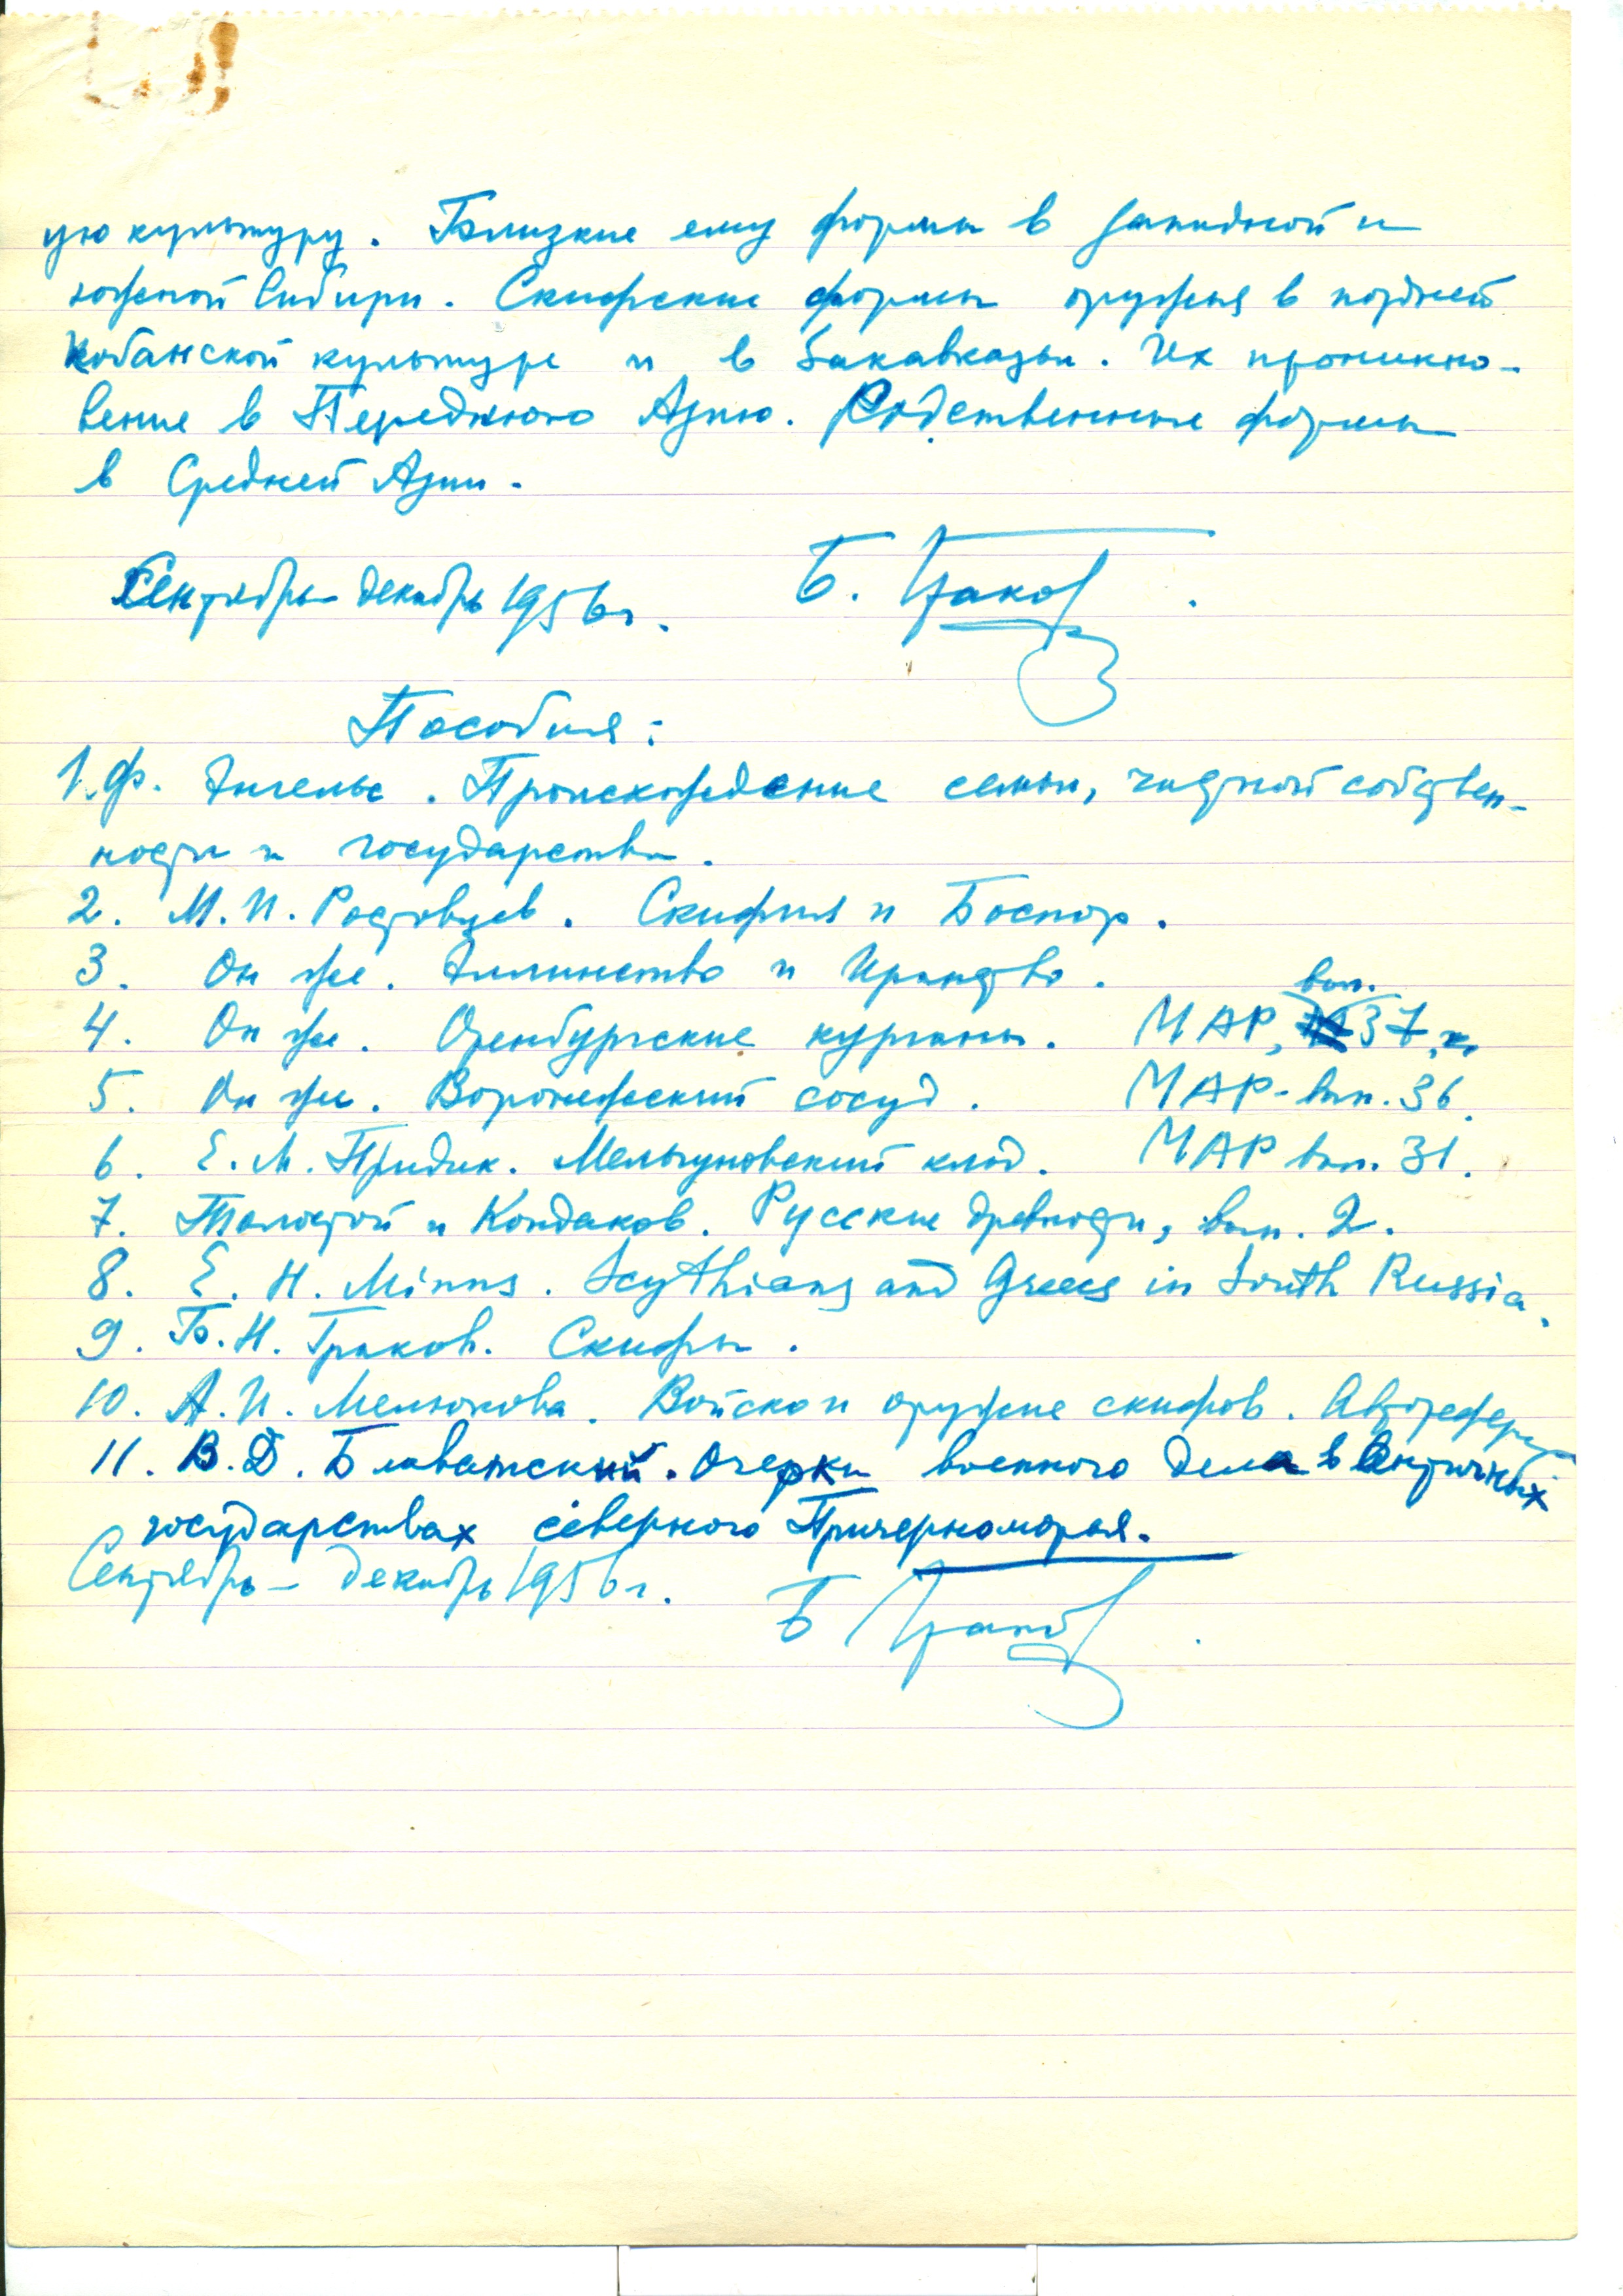 ую культуру. Близкие ему формы в Западной и
южной Сибири. Скифские формы оружия в поздней
Кобанской культуре и в Закавказьи. Их проникно-
вение в Переднюю Азию. Родственные формы
в Средней Азии.
Сентябрь-декабрь 1956 г. Б. Граков.
Пособия:
1. Ф. Энгельс. Происхождение семьи, частной собствен-
ности и государства.
2. М. И. Ростовцев. Скифия и Боспор.
3. Он же. Эллинство и Иранство.
4. Он же. Оренбургские курганы. МАР, вып. 37
5. Он же. Воронежский сосуд. МАР-вып. 36.
6. Е. М. Придик. Мельгуновский клад. МАР вып. 31.
7. Толстой и Кондаков. Русские древности, вып. 2.
8. E. H. Minns. Scythians and Greecs in South Russia.
9. Б. Н. Граков. Скифы.
10. А. И. Мелюкова. Войско и оружие скифов. Автореферат
11. В. Д. Блаватский. Очерки военного дела в Античных
государствах северного Причерноморья.
Сентябрь - декабрь 1956 г. Б Граков.